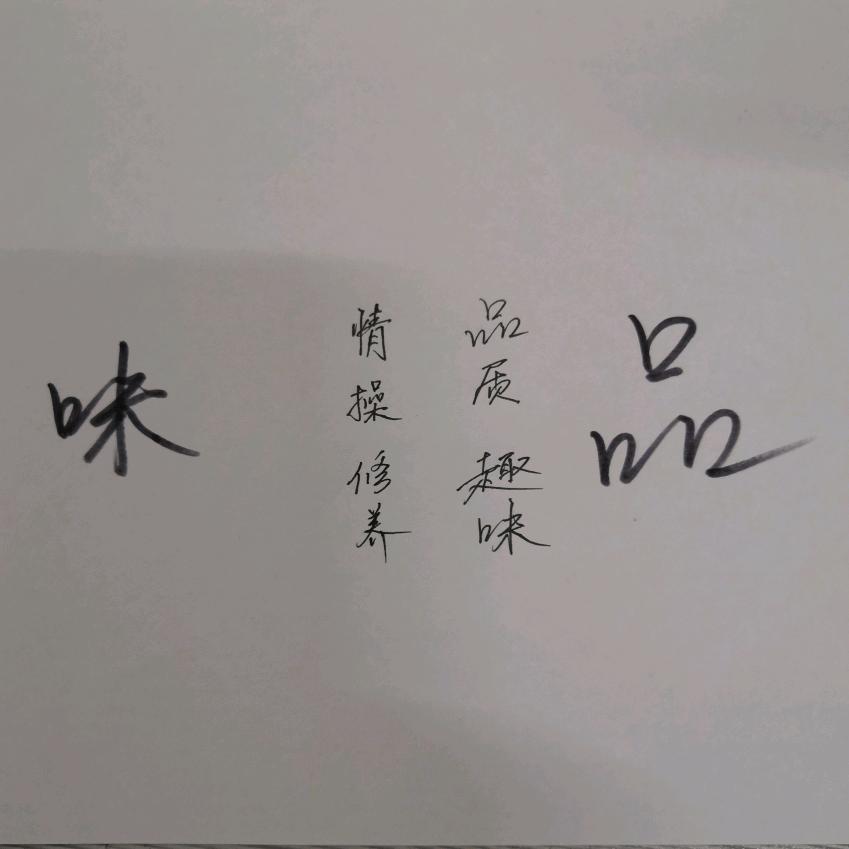 品
品质 趣味
情操 修养
味